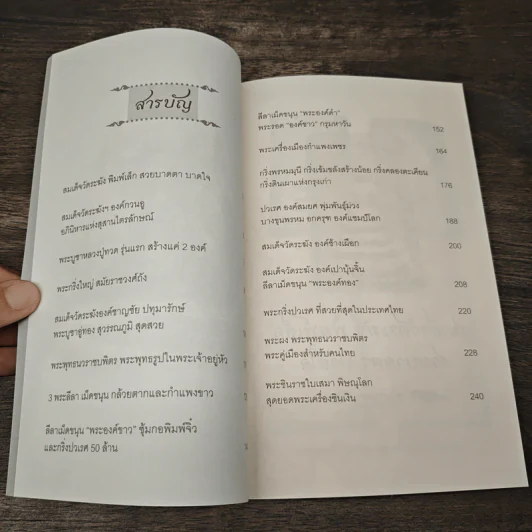 สารบัญ
สมเด็จวัดระฆัง พิมพ์เล็ก สวยบาดตา บาดใจ
สมเด็จวัดระฆังฯ องค์กวนอู
อภินิหารแห่งสุสานไตรลักษณ์
พระบูชาหลวงปู่ทวด รุ่นแรก สร้างแค่ 2 องค์
พระกริ่งใหญ่ สมัยราชวงศ์ถัง
สมเด็จวัดระฆังองค์ชาญชัย ปทุมารักษ์
พระบูชาอู่ทอง สุวรรณภูมิ สุดสวย
พระพุทธนวราชบพิตร พระพุทธรูปในพระเจ้าอยู่หัว
3 พระลีลา เม็ดขนุน กล้วยตากและกำแพงขาว
ลีลาเม็ดขนุน "พระองค์ขาว" ซุ้มกอพิมพ์จิ๋ว
และกริ่งปวเรศ 50 ล้าน
ลีลาเม็ดขนุน "พระองค์ดำ"
พระรอด "องค์ขาว" กรุมหาวัน 152
พระเครื่องเมืองกำแพงเพชร 164
กริ่งพรหมมุนี กริ่งเชิ่มขลังสร้างน้อย กริ่งคลองตะเคียน
กริ่งดินเผาแห่งกรุงเก่า 176
ปวเรศ องค์สมยศ พุ่มพันธุ์ม่วง
บางขุนพรหม อกครุฑ องค์แชมป์โลก 188
สมเด็จวัดระฆัง องค์ช้างเผือก 200
สมเด็จวัดระฆัง องค์เปาบุ้นจิ้น
ลีลาเม็ดขนุน "พระองค์ทอง" 208
พระกริ่งปวเรศ ที่สวยที่สุดในประเทศไทย 220
พระผง พระพุทธนวราชบพิตร
พระคู่เมืองสำหรับคนไทย 228
พระชินราชใบเสมา พิษณุโลก
สุดยอดพระเครื่องชินเงิน 240